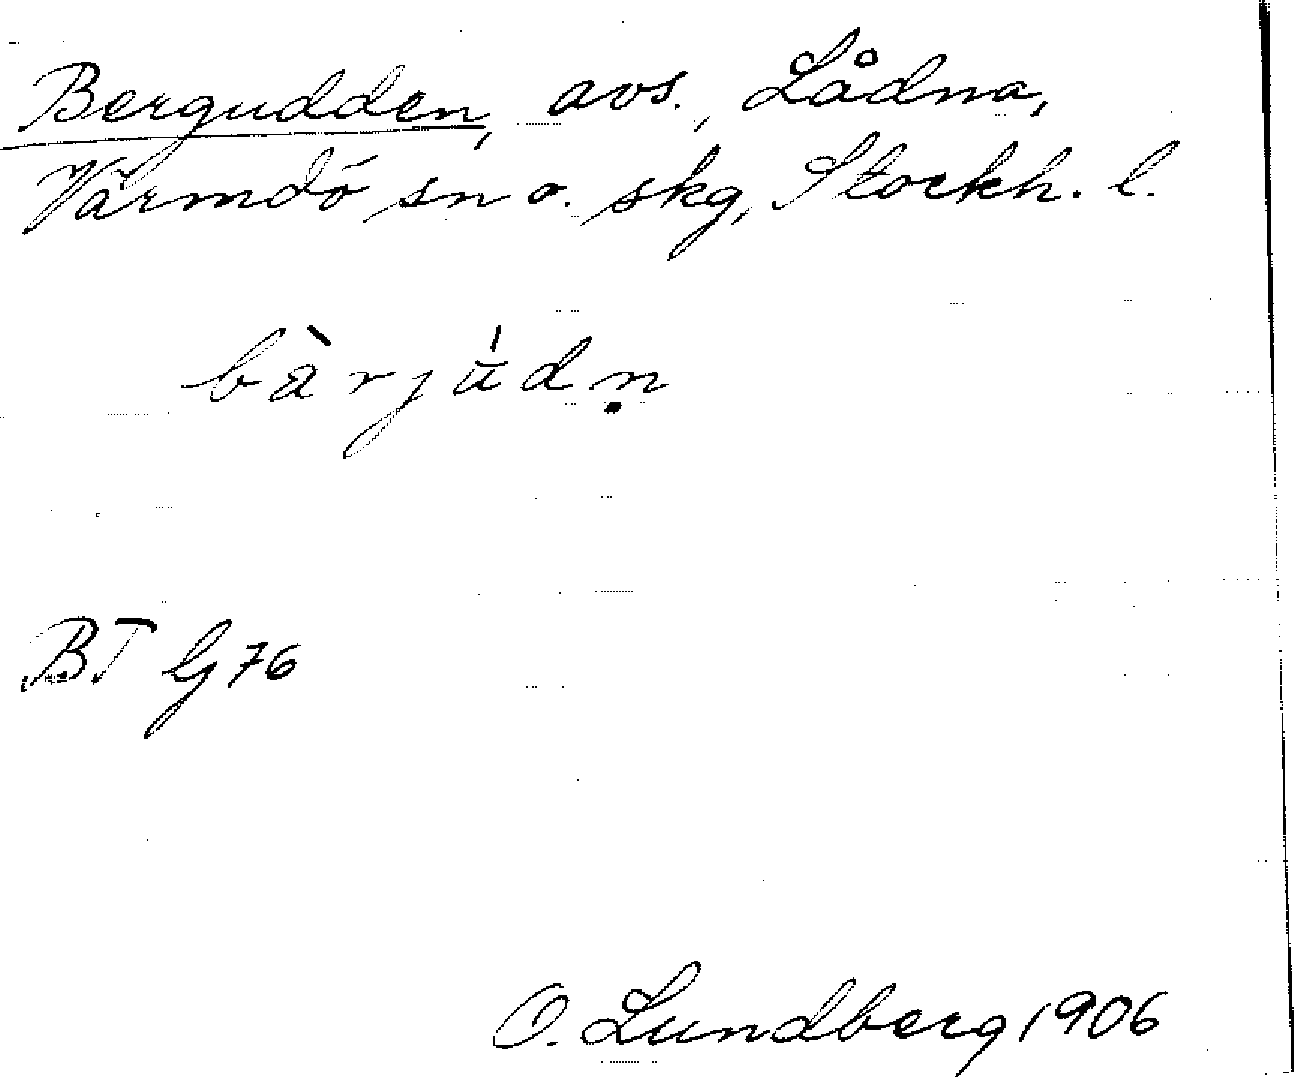 Bergudden, avs., Lådna,
Värmdö sn o. skg, Stockh. l.
bàrjúdṇ
BT G76
O. Lundberg 1906